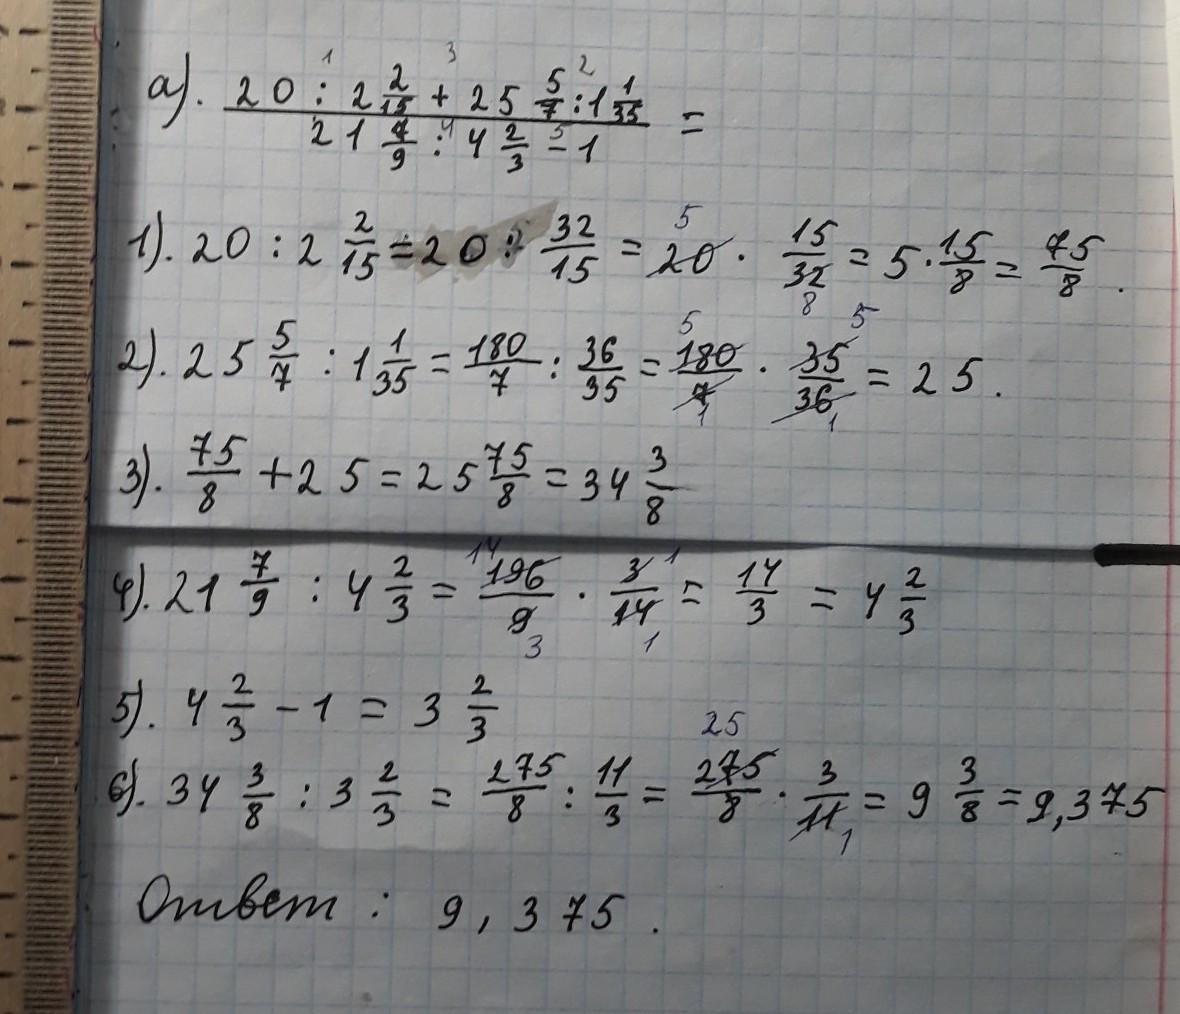 а). (20 : 2 2/15 + 25 5/7 : 1 1/35) / (21 7/9 : 4 2/3 - 1) =
1). 20 : 2 2/15 = 20 : 32/15 = 20 · 15/32 = 5 · 15/8 = 75/8 .
2). 25 5/7 : 1 1/35 = 180/7 : 36/35 = 180/7 · 35/36 = 25 .
3). 75/8 + 25 = 25 75/8 = 34 3/8
4). 21 7/9 : 4 2/3 = 196/9 · 3/14 = 14/3 = 4 2/3
5). 4 2/3 - 1 = 3 2/3
6). 34 3/8 : 3 2/3 = 275/8 : 11/3 = 275/8 · 3/11 = 9 3/8 = 9,375
Ответ : 9,375 .